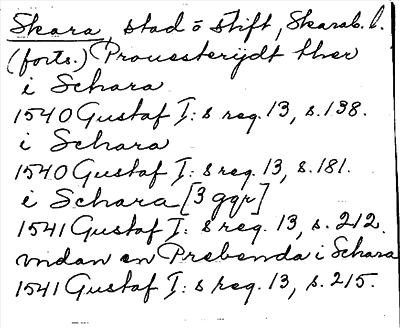 Skara, stad o stift, Skarab. l.
(forts.) Prouesterijdt ther
i Schara
1540 Gustaf I:s reg. 13, s. 138.
i Schara
1540 Gustaf I:s reg. 13, s. 181.
i Schara [3 ggr]
1541 Gustaf I:s reg. 13, s. 212.
vndan en Prebenda i Schara
1541 Gustaf I:s reg. 13, s. 215.